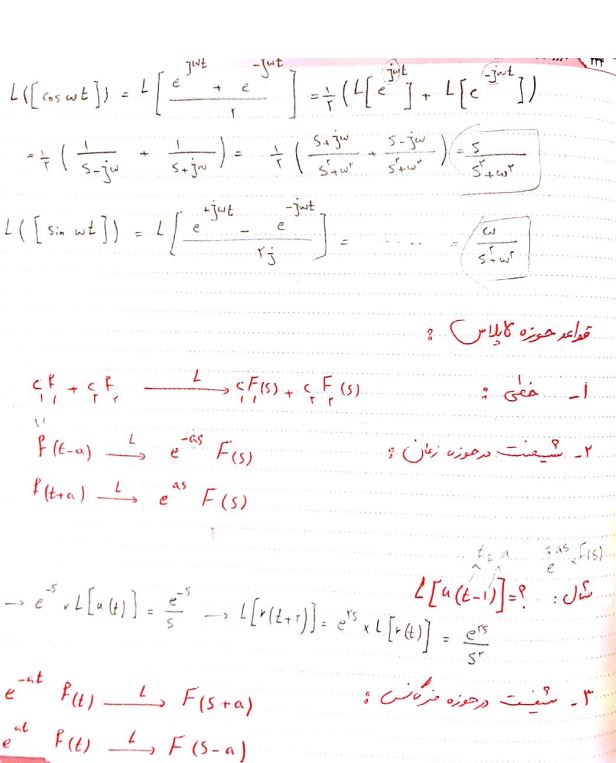 ۲۳۴
L([cos ωt]) = L[(e^{jωt} + e^{-jωt})/۲] = ۱/۲ (L[e^{jωt}] + L[e^{-jωt}])
= ۱/۲ (1/(s-jω) + 1/(s+jω)) = ۱/۲ ((s+jω)/(s^۲+ω^۲) + (s-jω)/(s^۲+ω^۲)) = s/(s^۲+ω^۲)
L([sin ωt]) = L[(e^{+jωt} - e^{-jωt})/۲j] = ..... = ω/(s^۲+ω^۲)
قواعد حوزه لاپلاس :
۱- خطی : c₁f₁ + c₂f₂ —L→ c₁F₁(s) + c₂F₂(s)
۲- شیفت در حوزه زمان : f(t-a) —L→ e^{-as} F(s)
f(t+a) —L→ e^{as} F(s)
t ± a e^{±as} × F(s)
مثال : L[u(t-1)] = ?
→ e^{-s} × L[u(t)] = e^{-s}/s → L[r(t+۲)] = e^{۲s} × L[r(t)] = e^{۲s}/s^۲
۳- شیفت در حوزه فرکانس : e^{-at} f(t) —L→ F(s+a)
e^{at} f(t) —L→ F(s-a)